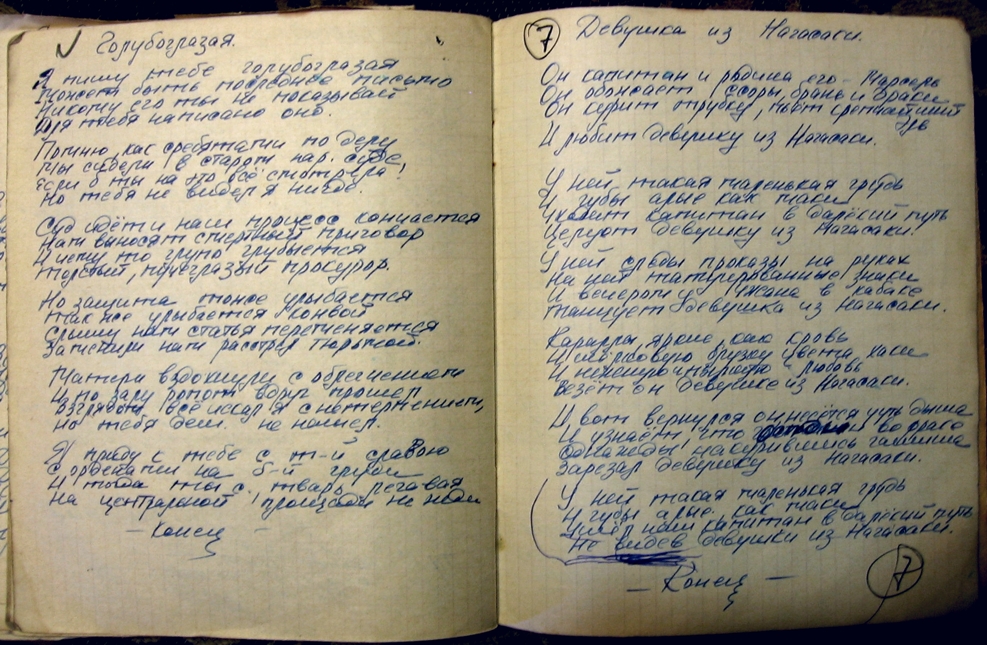 Голубоглазая.
Я пишу тебе голубоглазая
Может быть последнее письмо
Никому его ты не показывай
Для тебя написано оно.
Помню, как сребятами по делу
Мы сидели в старом нар. суде
Если б ты на это всё смотрела,
Но тебя не видел я нигде.
Суд идёт и наш процесс кончается
Нам выносят смертный приговор
И чему то глупо улыбается
пучеглазый прокурор.
Но защита тоже улыбается
Так же улыбается конвой
Слышу нам статья переменяется
Заменили нам расстрел тюрьмой.
Матери вздохнули с облегчением
И по залу ропот вдруг прошёл
Взглядом всё искал я с нетерпением,
Но тебя беш. не нашёл.
Я приду к тебе с т-й славою
С орденами на б-й груди
И тогда ты с. тварь, легавая
На центральной площади не жди
- Конец -
7 Девушка из Нагасаки.
Он капитан и родина его - Марсель
Он обожает ссоры, брань и драки
Он курит трубку, пьёт крепчайший
эль
И любит девушку из Нагасаки.
У ней такая маленькая грудь
И губы алые как маки
Уходит капитан в далёкий путь
Целует девушку из Нагасаки.
У ней следы проказы на руках
На ней татуированные знаки
И вечером у Джана в кабаке
Танцует девушка из Нагасаки.
Кораллы, яркие, как кровь
И шёлковую блузку цвета хаки
И любовь
Везёт он девушке из Нагасаки.
И вот вернулся он несётся чуть дыша
И узнаёт, что во фраке
Однажды накурившись гашиша
Зарезал девушку из Нагасаки.
У ней такая маленькая грудь
И губы алые, как маки
Ушёл наш капитан в далёкий путь
Не видев девушки из Нагасаки.
- Конец -
7